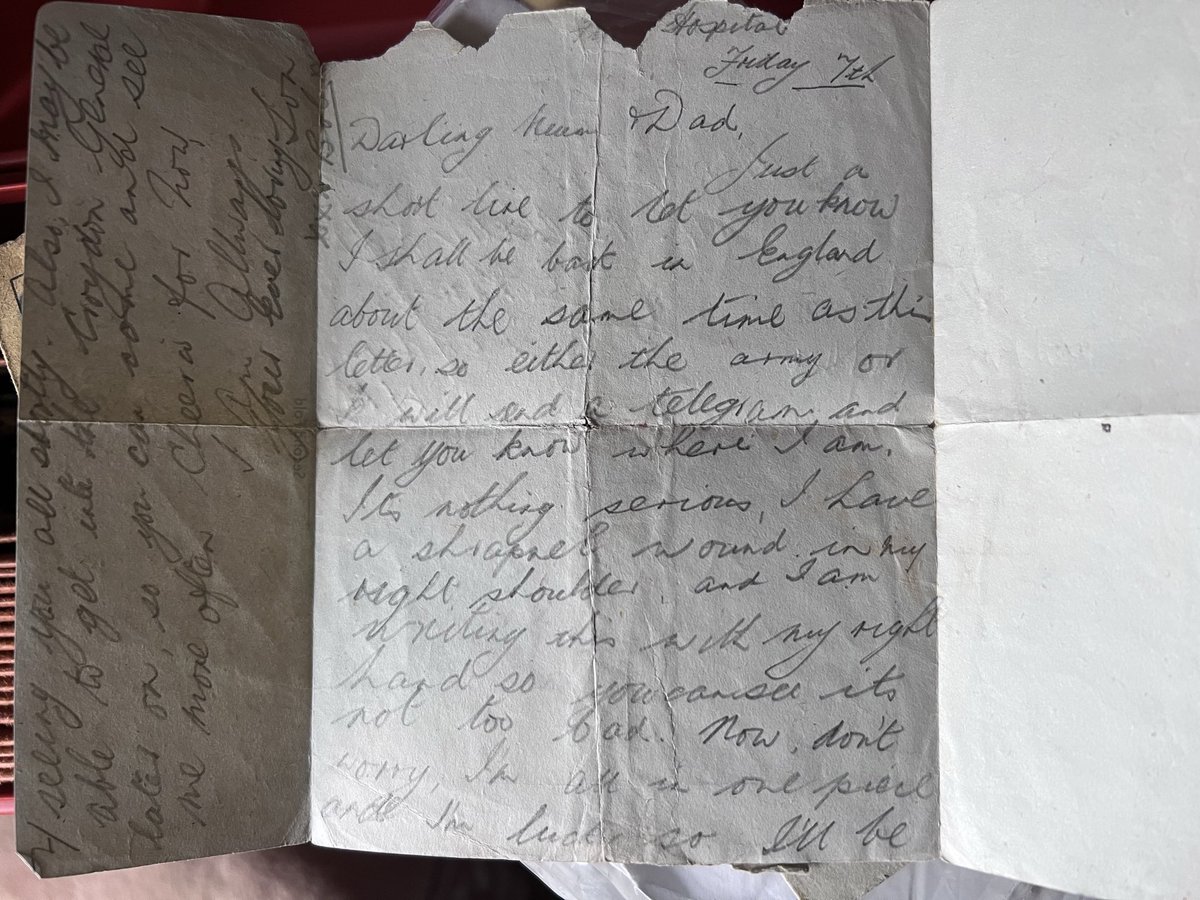 Hospital
Friday 7th
Darling Mum & Dad,
Just a
short line to let you know
I shall be back in England
about the same time as this
letter, so either the army or
I will send a telegram and
let you know where I am.
Its nothing serious, I have
a shrapnel wound in my
right shoulder, and I am
writing this with my right
hand so you can see its
not too bad. Now, don't
worry, I'm all in one piece
and I'm lucky so I'll be
seeing you all shortly. Also, I may be
able to get into the Croydon General
later on, so you can come and see
me more often
Cheerio for now,
I Am Allways
Your Ever loving Son